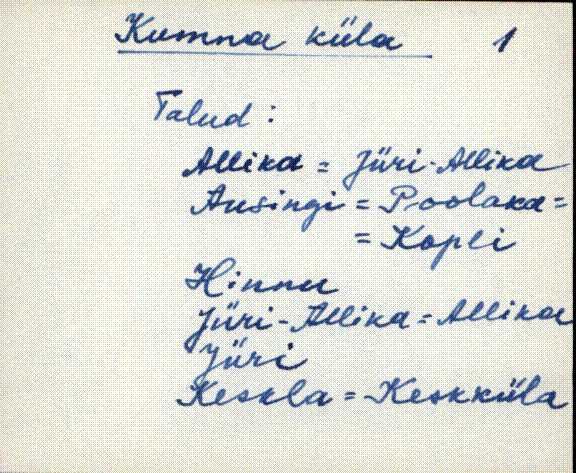 Kumna küla 1
Talud:
Allika = Jüri-Allika
Ansingi = Poolaka =
= Kopli
Hinnu
Jüri-Allika = Allika
Jüri
Keskla = Keskküla